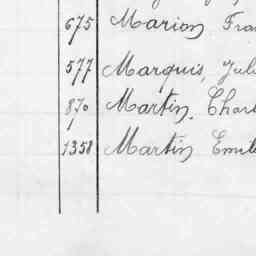 675 Marion Fra
577 Marquis, Jul
870 Martin, Charl
1358 Martin Emil